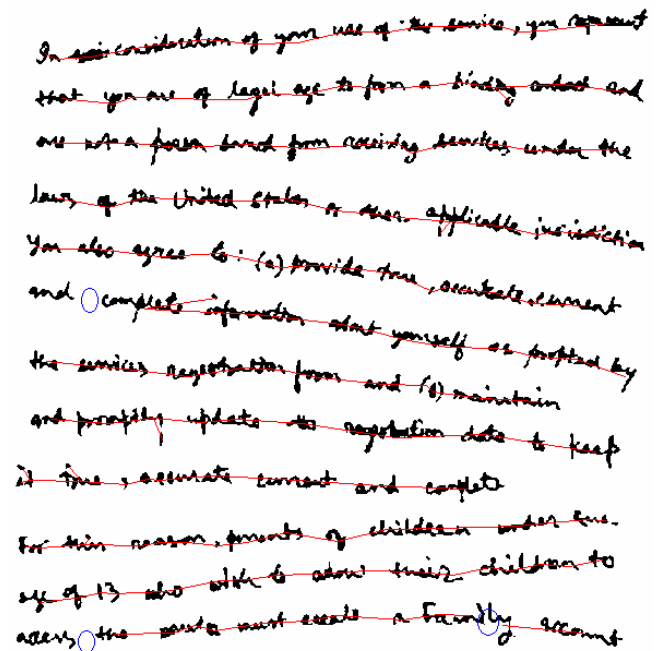 In consideration of your use of the service, you represent
that you are of legal age to form a binding contract and
are not a person bared from receiving services under the
laws of the United States or other applicable jurisdiction
You also agree to : (a) provide true, accurate, current
and complete information about yourself as by
the services registration form and (b) maintain
and promptly update the registration data to keep
it true, accurate current and complete
For this reason, parents of children under the
age of 13 who wish to allow their children to
access the must create a Family account